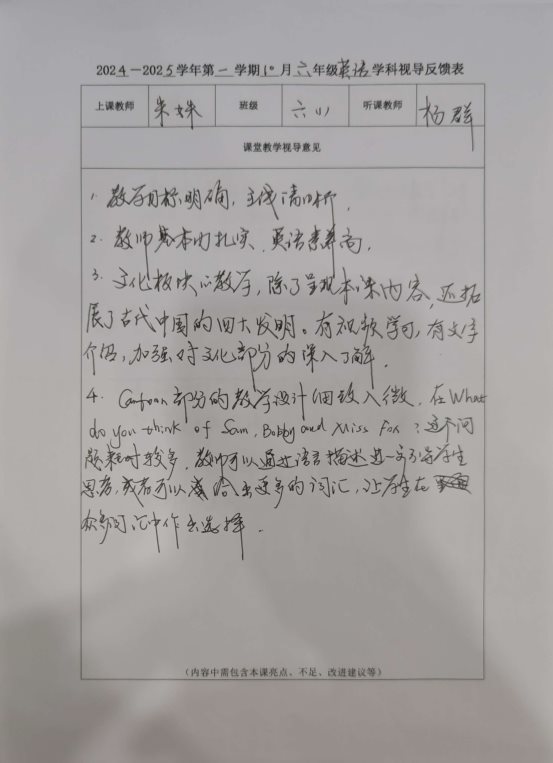 2024—2025学年第一学期10月六年级英语学科视导反馈表
上课教师 朱姝 班级 六(1) 听课教师 杨群
课堂教学视导意见
1. 教学目标明确，主线清晰。
2. 教师基本功扎实，英语素养高。
3. 文化板块的教学，除了呈现本课内容，还拓
展了古代中国的四大发明。有视频学习，有文字
介绍，加强对文化部分的深入了解。
4. Cartoon部分的教学设计细致入微，在What
do you think of Sam, Bobby and Miss Fox？这个问
题耗时较多，教师可以通过语言描述进一步引导学生
思考，或者可以给出更多的词汇，让学生在
众多词汇中作出选择。
（内容中需包含本课亮点、不足、改进建议等）